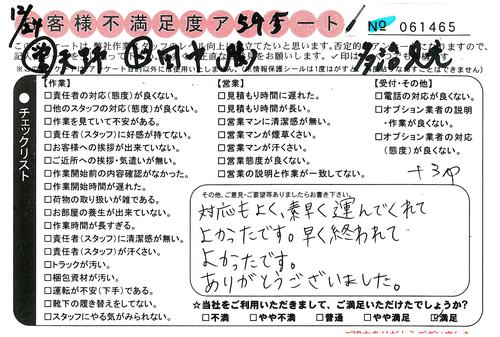 お客様不満足度アンケート
No 061465
【作業】
□責任者の対応(態度)が良くない。
□他のスタッフの対応(態度)が良くない。
□作業を見ていて不安がある。
□責任者(スタッフ)に好感が持てない。
□お客様への挨拶が出来ていない。
□ご近所への挨拶・気遣いが無い。
□作業開始前の内容確認がなかった。
□作業開始時間が遅れた。
□荷物の取り扱いが雑である。
□お部屋の養生が出来ていない。
□作業時間が長すぎる。
□責任者(スタッフ)に清潔感が無い。
□責任者(スタッフ)が汗くさい。
□トラックが汚い。
□梱包資材が汚い。
□運転が不安(下手)である。
□靴下の履き替えをしてない。
□スタッフにやる気がみられない。
【営業】
□見積もり時間に遅れた。
□見積もり時間が長い。
□営業マンに清潔感が無い。
□営業マンが煙草くさい。
□営業マンが汗くさい。
□営業態度が良くない。
□営業の説明と作業が一致してない。
【受付・その他】
□電話の対応が良くない。
□オプション業者の説明
・作業が良くない。
□オプション業者の対応
(態度)が良くない。
チェックリスト
その他、ご意見・ご要望等ありましたらお書き下さい。
対応もよく、素早く運んでくれて
よかったです。早く終われて
よかったです。
ありがとうございました。
☆当社をご利用いただきまして、ご満足いただけたでしょうか?
□不満 □やや不満 □普通 □やや満足 ☑満足